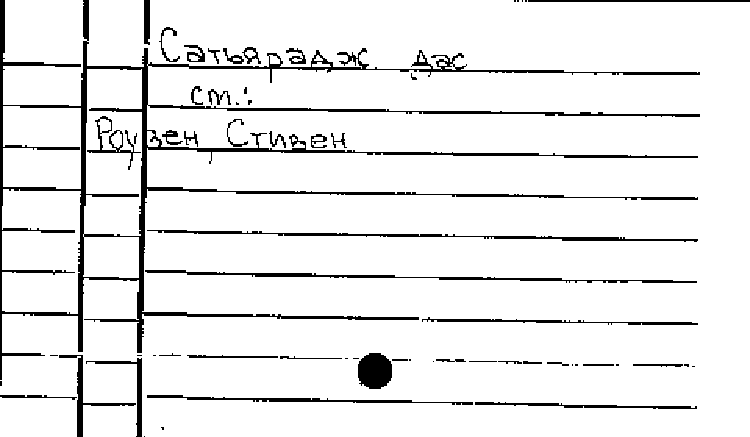 Сатьярадж дас
см.:
Роузен, Стивен